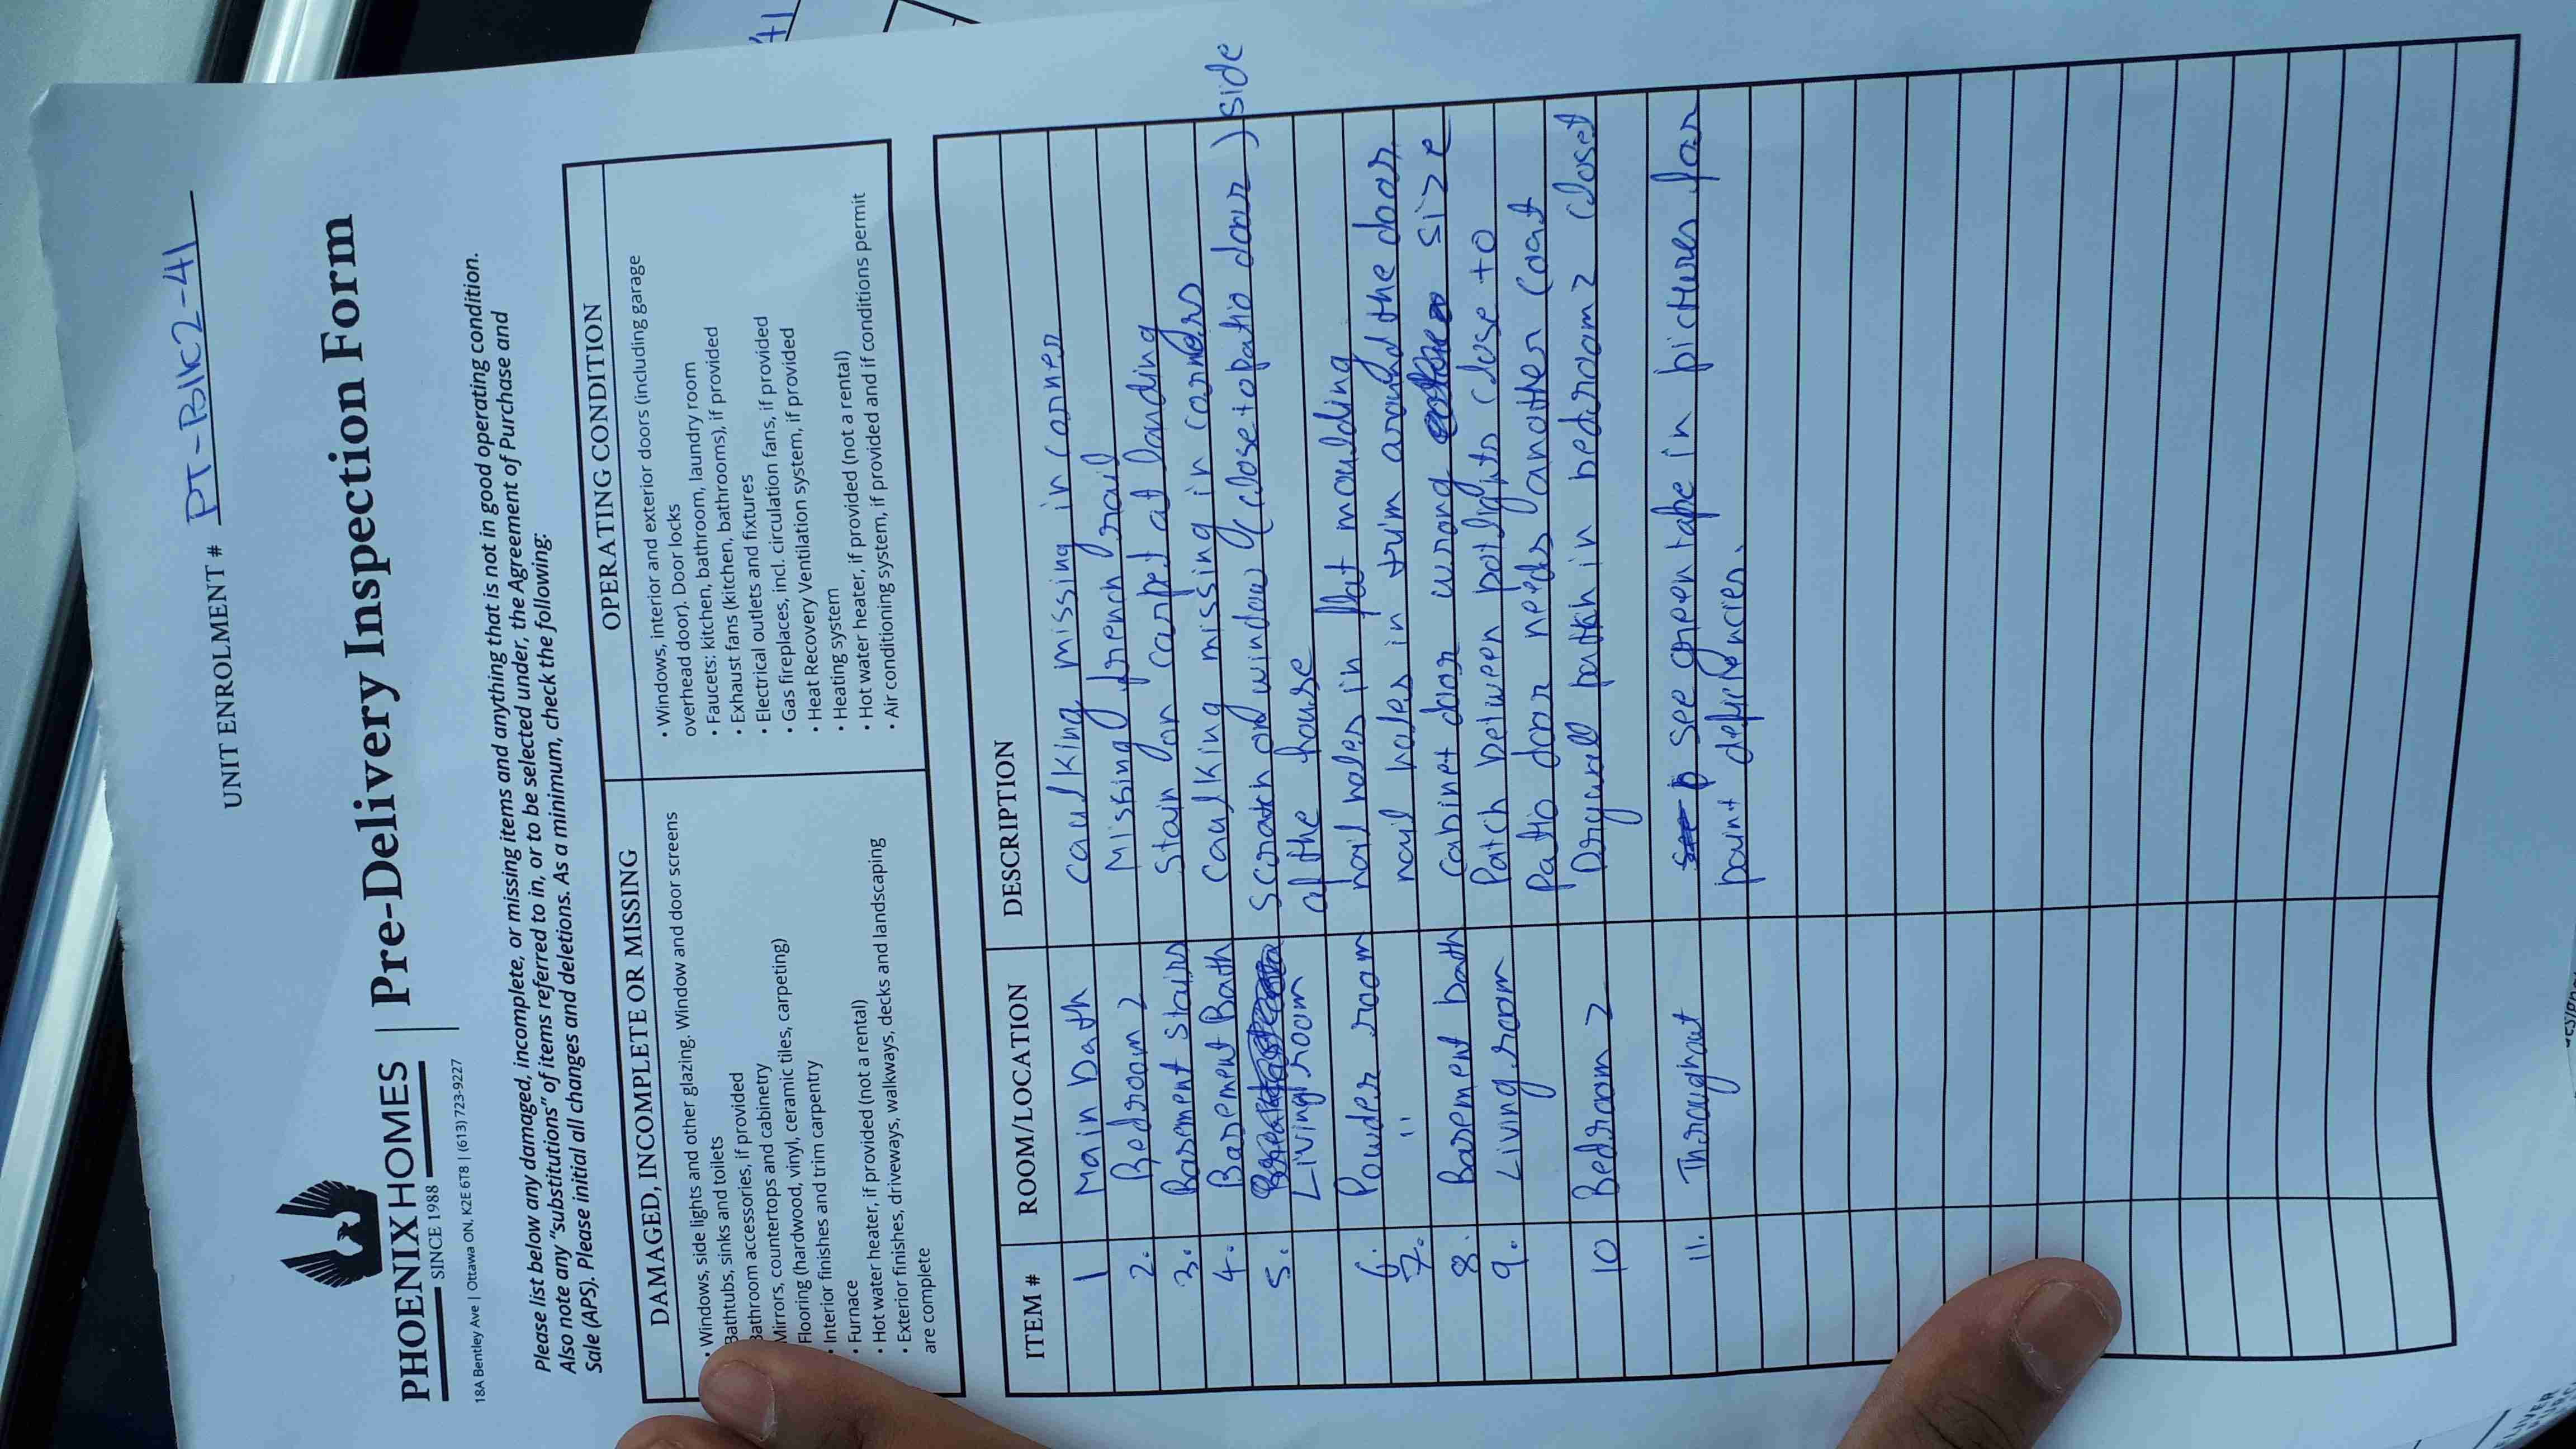 UNIT ENROLMENT # PT-Blk2-41
PHOENIX HOMES
SINCE 1988
Pre-Delivery Inspection Form
18A Bentley Ave | Ottawa ON, K2E 6T8 | (613) 723-9227
Please list below any damaged, incomplete, or missing items and anything that is not in good operating condition.
Also note any "substitutions" of items referred to in, or to be selected under, the Agreement of Purchase and
Sale (APS). Please initial all changes and deletions. As a minimum, check the following:
DAMAGED, INCOMPLETE OR MISSING
• Windows, side lights and other glazing. Window and door screens
Bathtubs, sinks and toilets
Bathroom accessories, if provided
Mirrors, countertops and cabinetry
Flooring (hardwood, vinyl, ceramic tiles, carpeting)
• Interior finishes and trim carpentry
• Furnace
• Hot water heater, if provided (not a rental)
• Exterior finishes, driveways, walkways, decks and landscaping
are complete
OPERATING CONDITION
• Windows, interior and exterior doors (including garage
overhead door). Door locks
• Faucets: kitchen, bathroom, laundry room
• Exhaust fans (kitchen, bathrooms), if provided
• Electrical outlets and fixtures
• Gas fireplaces, incl. circulation fans, if provided
• Heat Recovery Ventilation system, if provided
• Heating system
• Hot water heater, if provided (not a rental)
• Air conditioning system, if provided and if conditions permit
ITEM # ROOM/LOCATION DESCRIPTION
1 Main bath caulking missing in corner
2. Bedroom 2 Missing french rail
3. Basement stairs Stain on carpet at landing
4. Basement Bath Caulking missing in corners
5. Living room Scratch on window (close to patio door) side
of the house
6. Powder room nail holes in flat moulding
7. " nail holes in trim around the door
8. Basement bath Cabinet door wrong size
9. Living room Patch between potlights close to
Patio door needs another coat
10 Bedroom 2 Drywall patch in bedroom 2 closet
11. Throughout see green tape in pictures for
paint deficiencies.